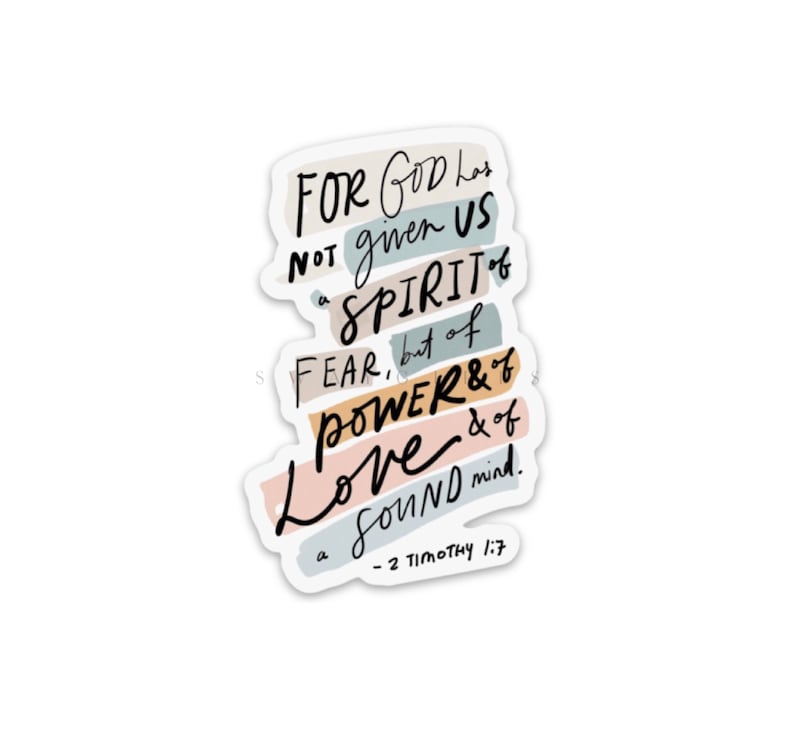 FOR GOD has
NOT given US
a SPIRIT of
FEAR, but of
POWER & of
Love & of
a SOUND mind.
- 2 TIMOTHY 1:7